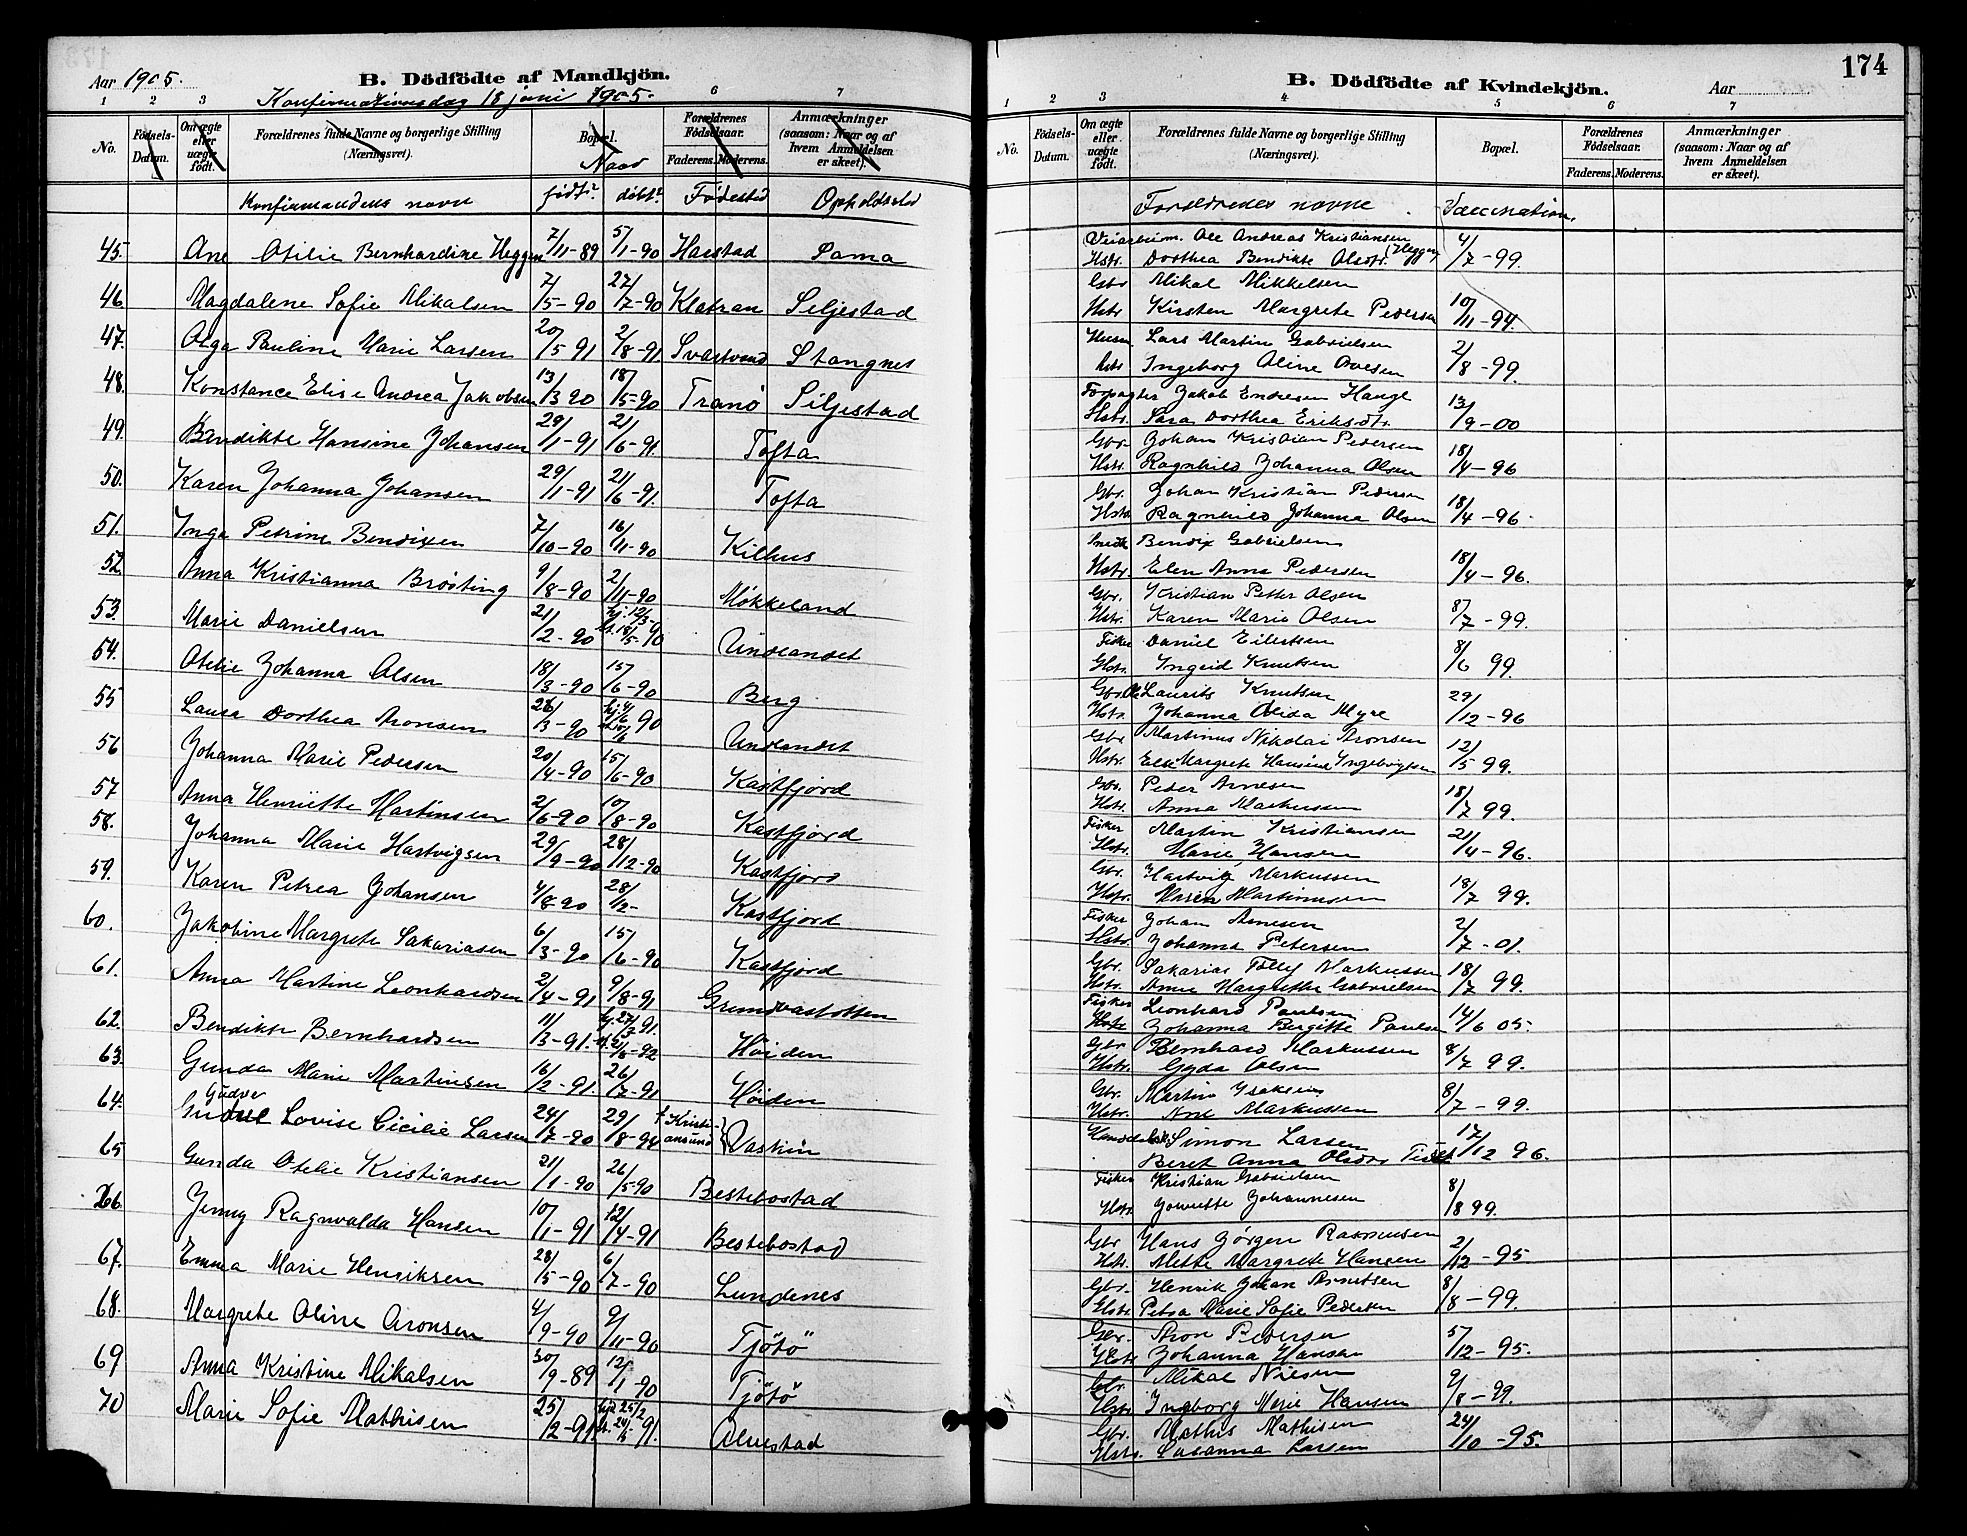 Aar 1905.
B. Dödfödte af Mandkjön.
Konfirmationsdag 18 juni 1905.
1 2 3 6 7
No.
Födsels-Datum.
Om ægte eller uægte födt.
Forældrenes fulde Navne og borgerlige Stilling (Næringsvei).
Bopæl.
Naar
Forældrenes Födselsaar.
Faderens. Moderens.
Anmærkninger (saasom: Naar og af hvem Anmeldelsen er skeet).
Konfirmandens navn født? døbt? Fødested Opholdssted
45. Ane Otilie Bernhardine Heggen 7/11-89 5/1-90 Harstad Sama
46. Magdalene Sofie Mikalsen 7/5-90 27/7-90 Klatran Seljestad
47. Olga Pauline Marie Larsen 20/5 91 2/8-91 Svartvand Stangnes
48. Konstance Elise Andrea Jakobsen 13/3 90 18/5-90 Tranø Seljestad
49. Bendikte Hansine Johansen 29/1-91 21/6-91 Tofta
50. Karen Johanna Johansen 29/1-91 21/6-91. Tofta
51. Inga Petrine Bendixen 7/10-90 16/11-90 Kilhus
52 Anna Kristianna Brøsting 9/8-90 2/11-90 Møkkeland
53. Marie Danielsen 21/2-90 hj. 12/3- 18/5-90 Undlandet
54. Otelie Johanna Olsen 18/3-90 15/6-90 Berg
55 Laura Dorthea Aronsen 28/3-90 90 Undlandet
56 Johanna Marie Pedersen 20/4-90 15/6-90 Kastfjord
57 Anna Henriette Martinsen 2/6-90 10/8-90 Kastfjord
58. Johanna Marie Hartvigsen 29/9-90 28/12-90 Kastfjord
59. Karen Petrea Johansen 4/8-90 28/12- Kastfjord
60. Jakobine Margrete Sakariasen 6/3-90 15/6-90 Kastfjord
61. Anna Martine Leonhardsen 2/4-91 9/8-91 Grundvastotten
62. Bendikte Bernhardsen 11/3-91. Høiden
63. Gunda Marie Martinsen 16/2-91. 26/7-91 Høiden
64. Gudver Lovise Cicilie Larsen 24/7-90 29/8-94 Kristiansund Vaskin
65 Gunda Otelie Kristiansen 21/1-90 26/5-90 Bestebostad
66 Jenny Ragnvalda Hansen 10/1-91 12/4-91 Bestebostad
67. Emma Marie Henriksen 28/5-90 6/7-90 Lundenes
68. Margrete Oline Aronsen 4/9-90 9/11-90 Tjøtö
69 Anna Kristine Mikalsen 30/9-89 12/1-90 Tjøtö
70 Marie Sofie Mathisen 25/2-91 25/2 91. Alvestad
174
B. Dödfödte af Kvindekjön.
Aar
1 2 3 4 5 6 7
No.
Födsels-Datum.
Om ægte eller uægte födt.
Forældrenes fulde Navne og borgerlige Stilling (Næringsvei).
Bopæl.
Forældrenes Födselsaar.
Faderens. Moderens.
Anmærkninger (saasom: Naar og af hvem Anmeldelsen er skeet).
Forældrenes navne. Vaccination.
Veiarbeim. Ole Andreas Kristiansen (Heggen) 4/7-99.
Hstr. Dorthea Bendikte Olsdtr.
Gbr Mikal Mikkelsen
Hstr. Kirsten Margrete Pedersen 10/11-94.
Husm. Lars Martin Gabrielsen 2/8-99.
Hstr Ingeborg Oline Ovesen
Forpagter Jakob Endresen Haugl 13/9-00
Hstr. Sara Dorthea Eriksdtr.
Gbr. Johan Kristian Pedersen 18/4-96
Hstr. Ragnhild Johanna Olsen
Gbr. Johan Kristian Pedersen 18/4-96.
Hstr Ragnhild Johanna Olsen
Snedk Bendix Gabrielsen
Hstr. Elen Anna Pedersen 18/4-96.
Gbr. Kristian Petter Olsen
Hstr. Karen Marie Olsen 8/7-99.
Fisker Daniel Eilertsen
Hstr. Ingeid Knutsen 8/6 99.
Gbr. Ole Laurits Knutsen 29/12-96
Hstr. Johanna Olida Myre
Gbr Martinus Nikolai Aronsen
Hstr. Elen Margrete Hansine Ingebrigtsen 12/5 99.
Gbr. Peder Arnesen
Hstr. Anna Markussen 18/7 99.
Fisker Martin Kristiansen
Hstr. Marie Hansen 21/4-96.
Gbr. Hartvig Markussen
Hstr. Maren Martinusen 18/7 99.
Fisker Johan Arnesen
Hstr. Johanna Petersen 2/7-01.
Gbr. Sakarias Tolly Markussen 18/7 99.
Hstr. Anne Margrethe Gabrielsen
Fisker Leonhard Paulsen 14/6 05.
Hstr Johanna Bergitte Paulsen
Gbr Bernhard Markussen 8/7 99.
Hstr. Gyda Olsen
Gbr. Martin Isaksen 8/7-99.
Hstr. Ane Markussen
Simon Larsen 17/12 96.
Beret Anna Olsdtr
Fisker Kristian Gabrielsen 8/8 99.
Hstr. Johannesen
Gbr Hans Jørgen Rasmusen 2/12-95
Hstr. Mette Margrete Hansen
Gbr. Henrik Johan Arntsen 8/8-99.
Hstr Petra Marie Sofie Pedersen
Gbr. Aron Pedersen 5/12-95.
Hstr Johanna Hansen
Gbr. Mikal Nilsen 9/8-99.
Hstr. Ingeborg Marie Hansen
Gbr. Mathis Mathisen 24/10-95.
Hstr. Susanna Larsen